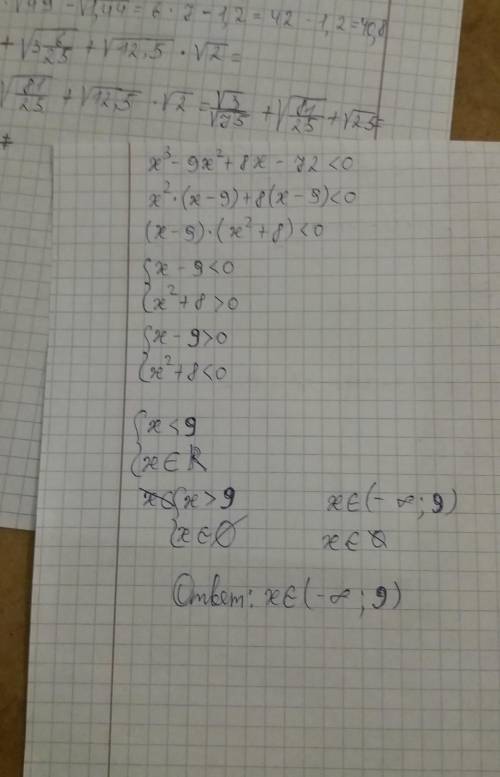 · √49 - √1,44 = 6 · 7 - 1,2 = 42 - 1,2 = 40,8
+ √3 6/25 + √12,5 · √2 =
√81/25 + √12,5 · √2 = √3/√75 + √81/25 + √25 =
x³ - 9x² + 8x - 72 < 0
x² · (x - 9) + 8(x - 9) < 0
(x - 9) · (x² + 8) < 0
{ x - 9 < 0
{ x² + 8 > 0
{ x - 9 > 0
{ x² + 8 < 0
{ x < 9
{ x ∈ R
{ x > 9 x ∈ (-∞; 9)
{ x ∈ ∅ x ∈ ∅
Ответ: x ∈ (-∞; 9)